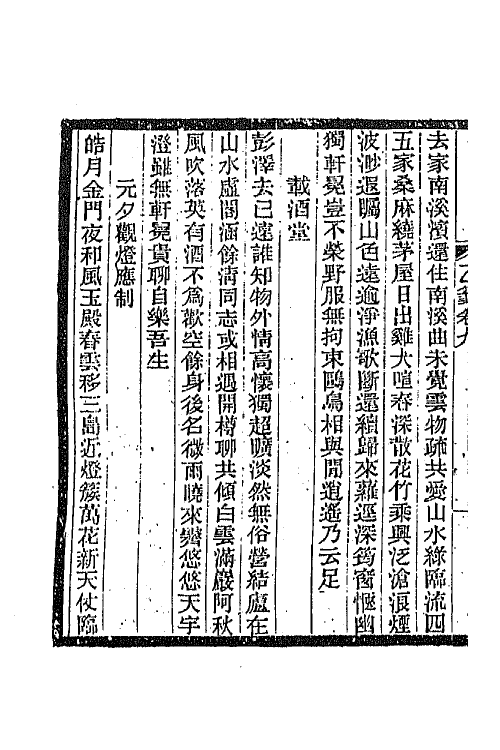 去家南溪濱還住南溪曲未覺雲物疏共愛山水綠臨流四
五家桑麻繞茅屋日出雞犬喧春深散花竹乘興泛滄浪煙
波渺遐矚山色遠逾淨漁歌斷還續歸來蘿逕深筠窗愜幽
獨軒冕豈不榮野服無拘束鷗鳥相與閒逍遙乃云足
載酒堂
彭澤去已遠誰知物外情高懷獨超曠淡然無俗營結廬在
山水虛閣涵餘清同志或相過開樽聊共傾白雲滿巖阿秋
風吹落英有酒不為歡空餘身後名微雨曉來霽悠悠天宇
澄雖無軒冕貴聊自樂吾生
元夕觀燈應制
皓月金門夜和風玉殿春雲移三島近燈簇萬花新天仗臨